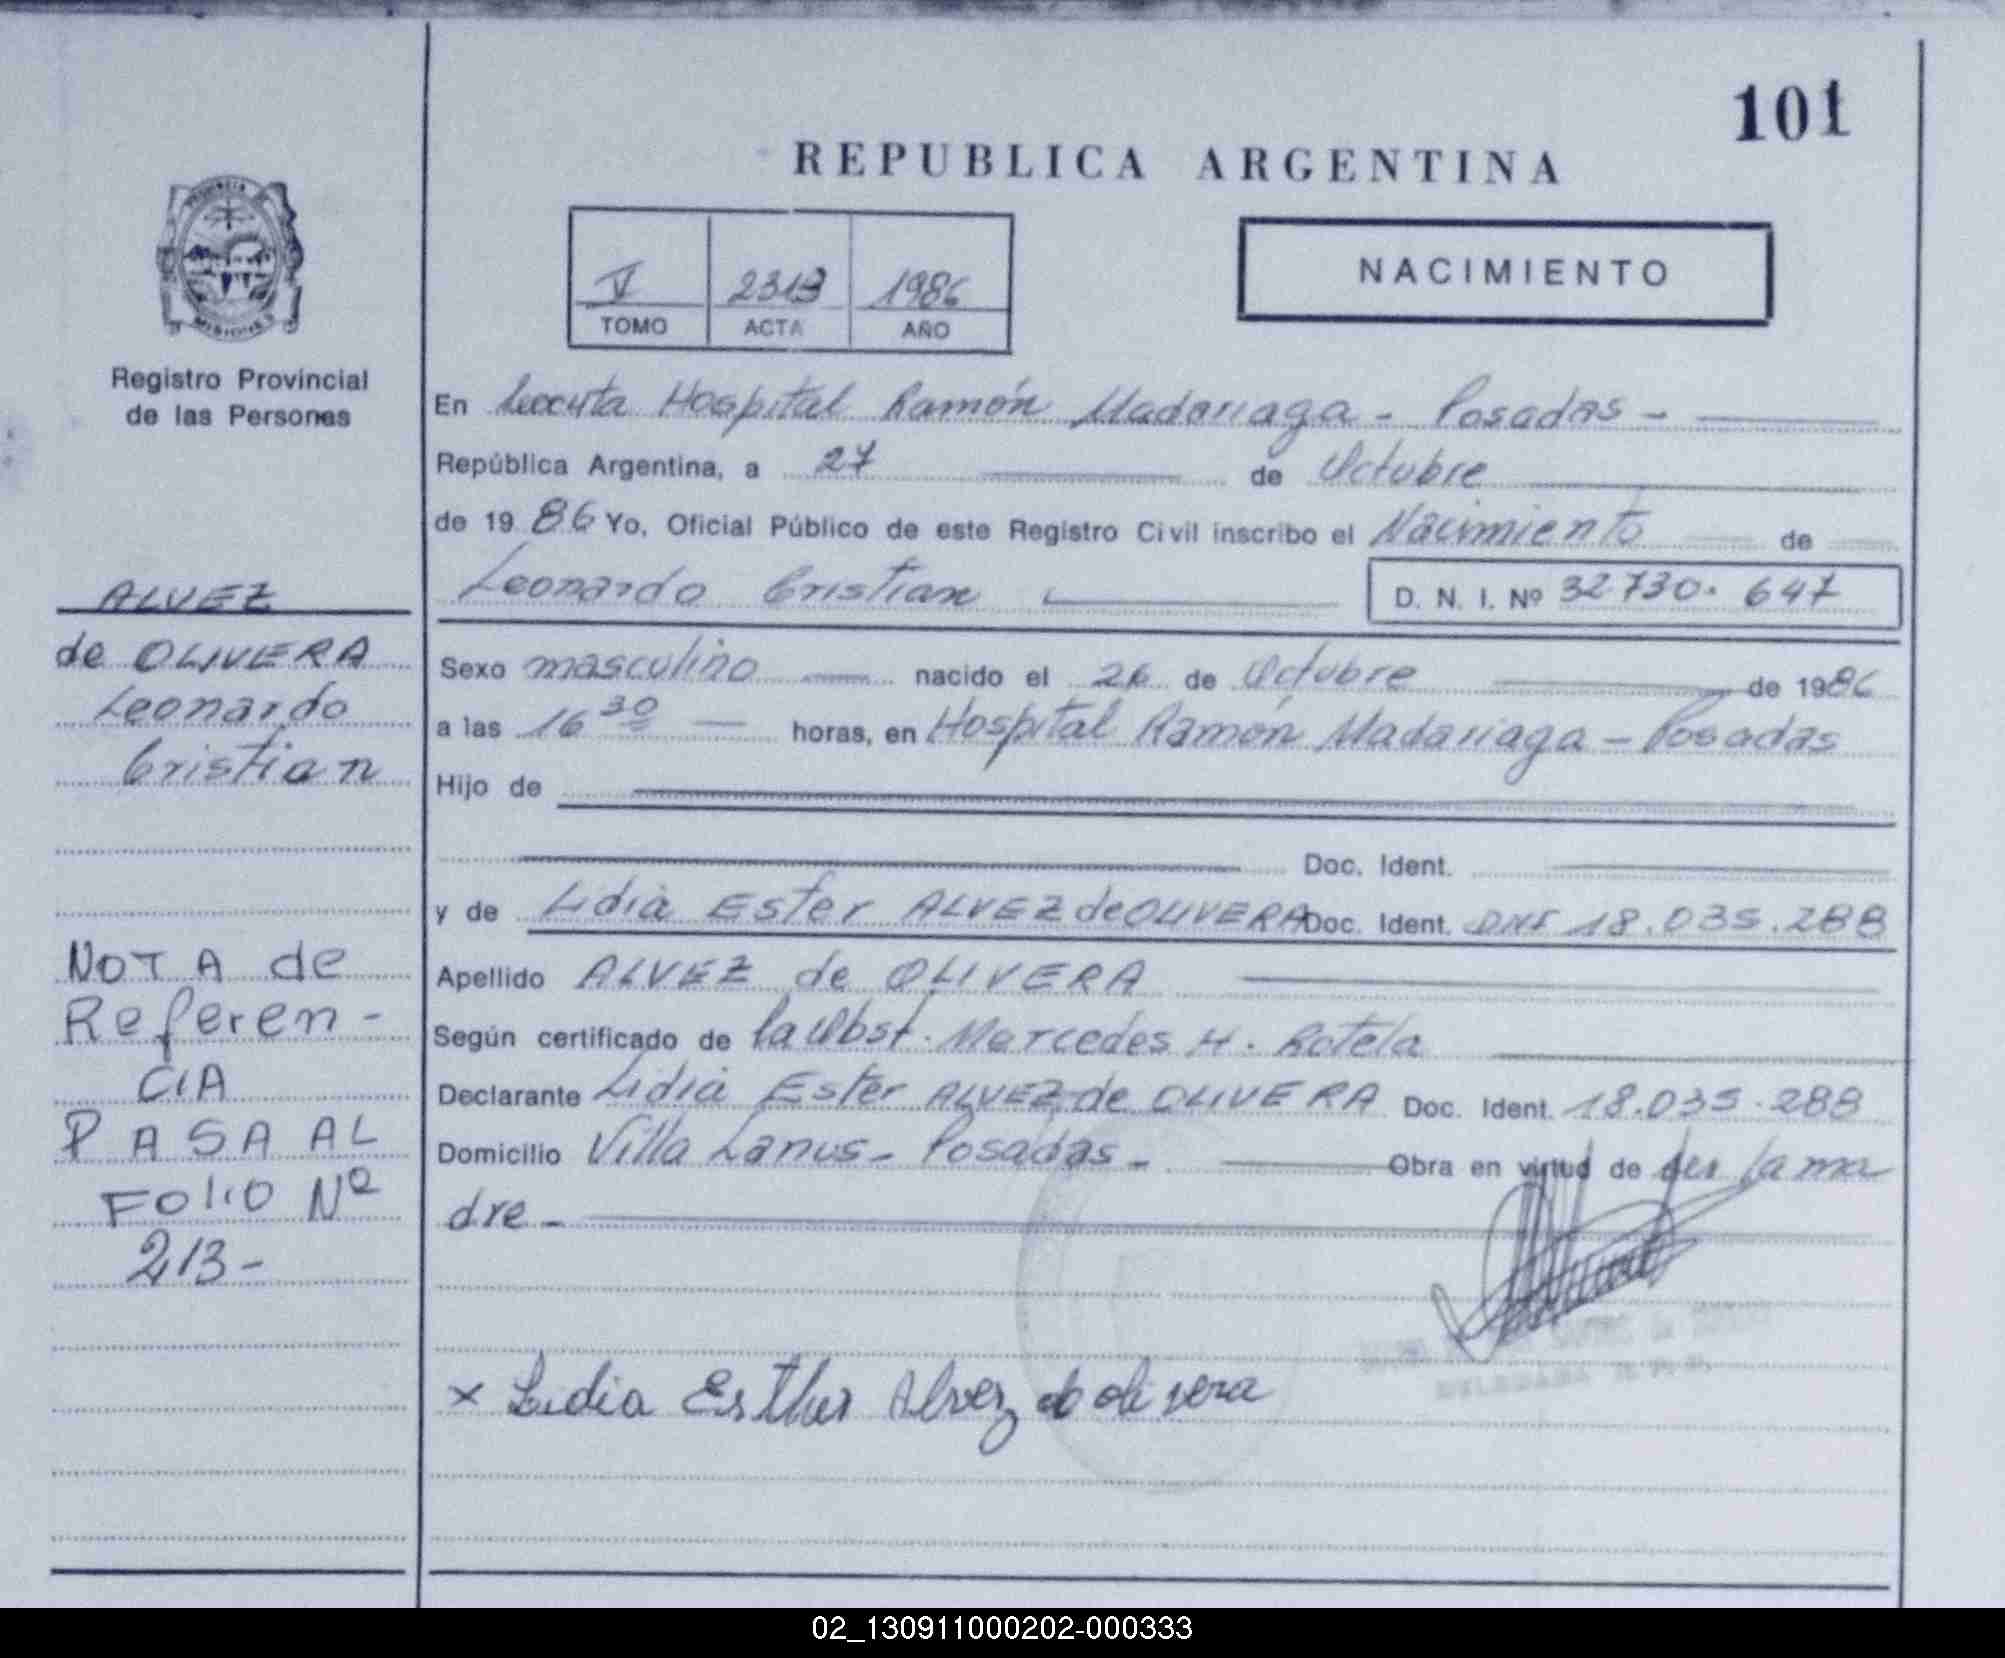 101
REPUBLICA ARGENTINA
PROVINCIA DE
MISIONES
Registro Provincial
de las Personas
V 2313 1986
TOMO ACTA AÑO
NACIMIENTO
En Hospital Ramón Madariaga - Posadas -
República Argentina, a 27 de Octubre
de 1986 Yo, Oficial Público de este Registro Civil inscribo el Nacimiento de
Leonardo Cristian D. N. I. Nº 32.730.647
Sexo masculino nacido el 26 de Octubre de 1986
a las 16 30 horas, en Hospital Ramón Madariaga - Posadas
Hijo de
Doc. Ident.
y de Lidia Ester ALVEZ de OLIVERA Doc. Ident. DNI 18.035.288
Apellido ALVEZ de OLIVERA
Según certificado de la Obst. Mercedes H. Rotela
Declarante Lidia Ester ALVEZ de OLIVERA Doc. Ident. 18.035.288
Domicilio Villa Lanus - Posadas - Obra en virtud de ser la ma
dre -
x Lidia Esther Alvez de olivera
DELEGADA R.P.P.
ALVEZ
de OLIVERA
Leonardo
Cristian
NOTA de
Referen-
CIA
PASA AL
FOLIO Nº
213-
02_130911000202-000333